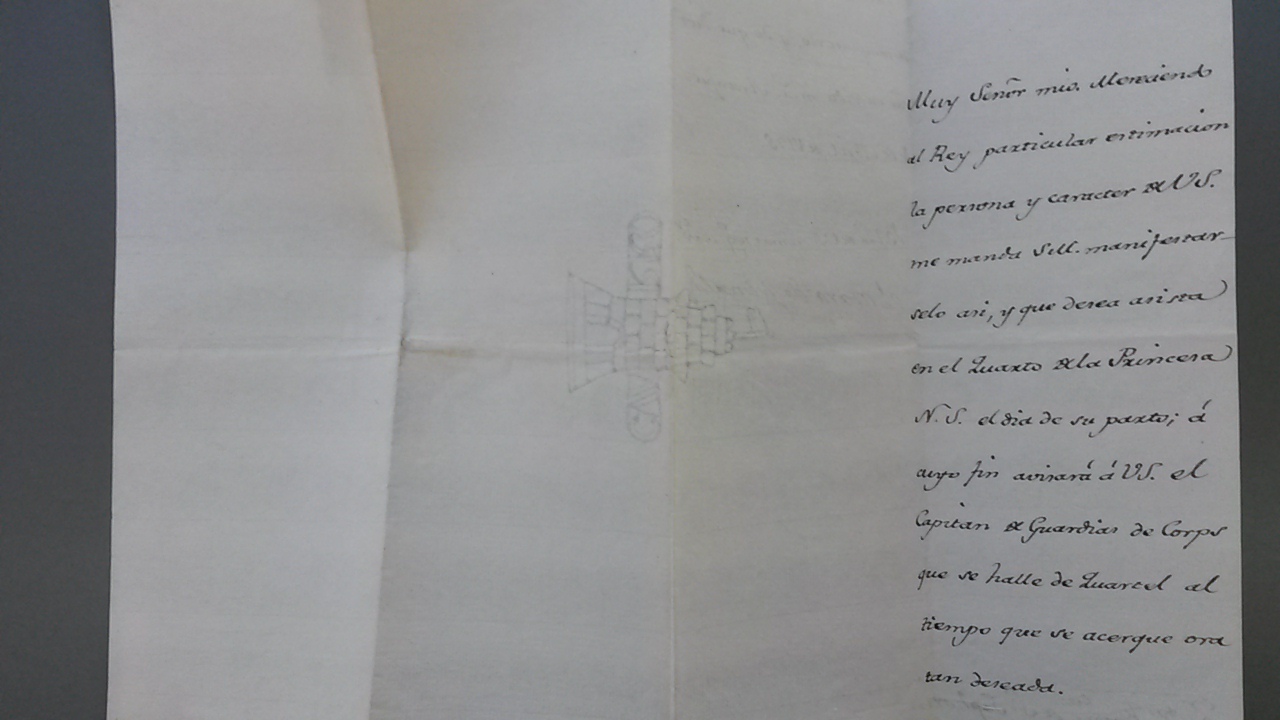 Muy Señor mio. Mereciendo
al Rey particular estimacion
la persona y caracter de VS.
me manda S.M. manifestar-
selo asi, y que desea asista
en el Quarto de la Princesa
N. S. el dia de su parto; á
cuyo fin avisará á VS. el
Capitan de Guardias de Corps
que se halle de Quartel al
tiempo que se acerque ora
tan deseada.